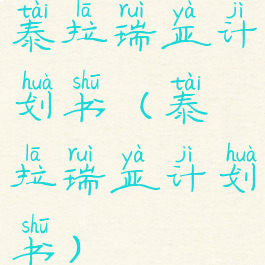 tài lā ruì yà jì
泰拉瑞亚计
huà shū tài
划书（泰
lā ruì yà jì huà
拉瑞亚计划
shū
书）